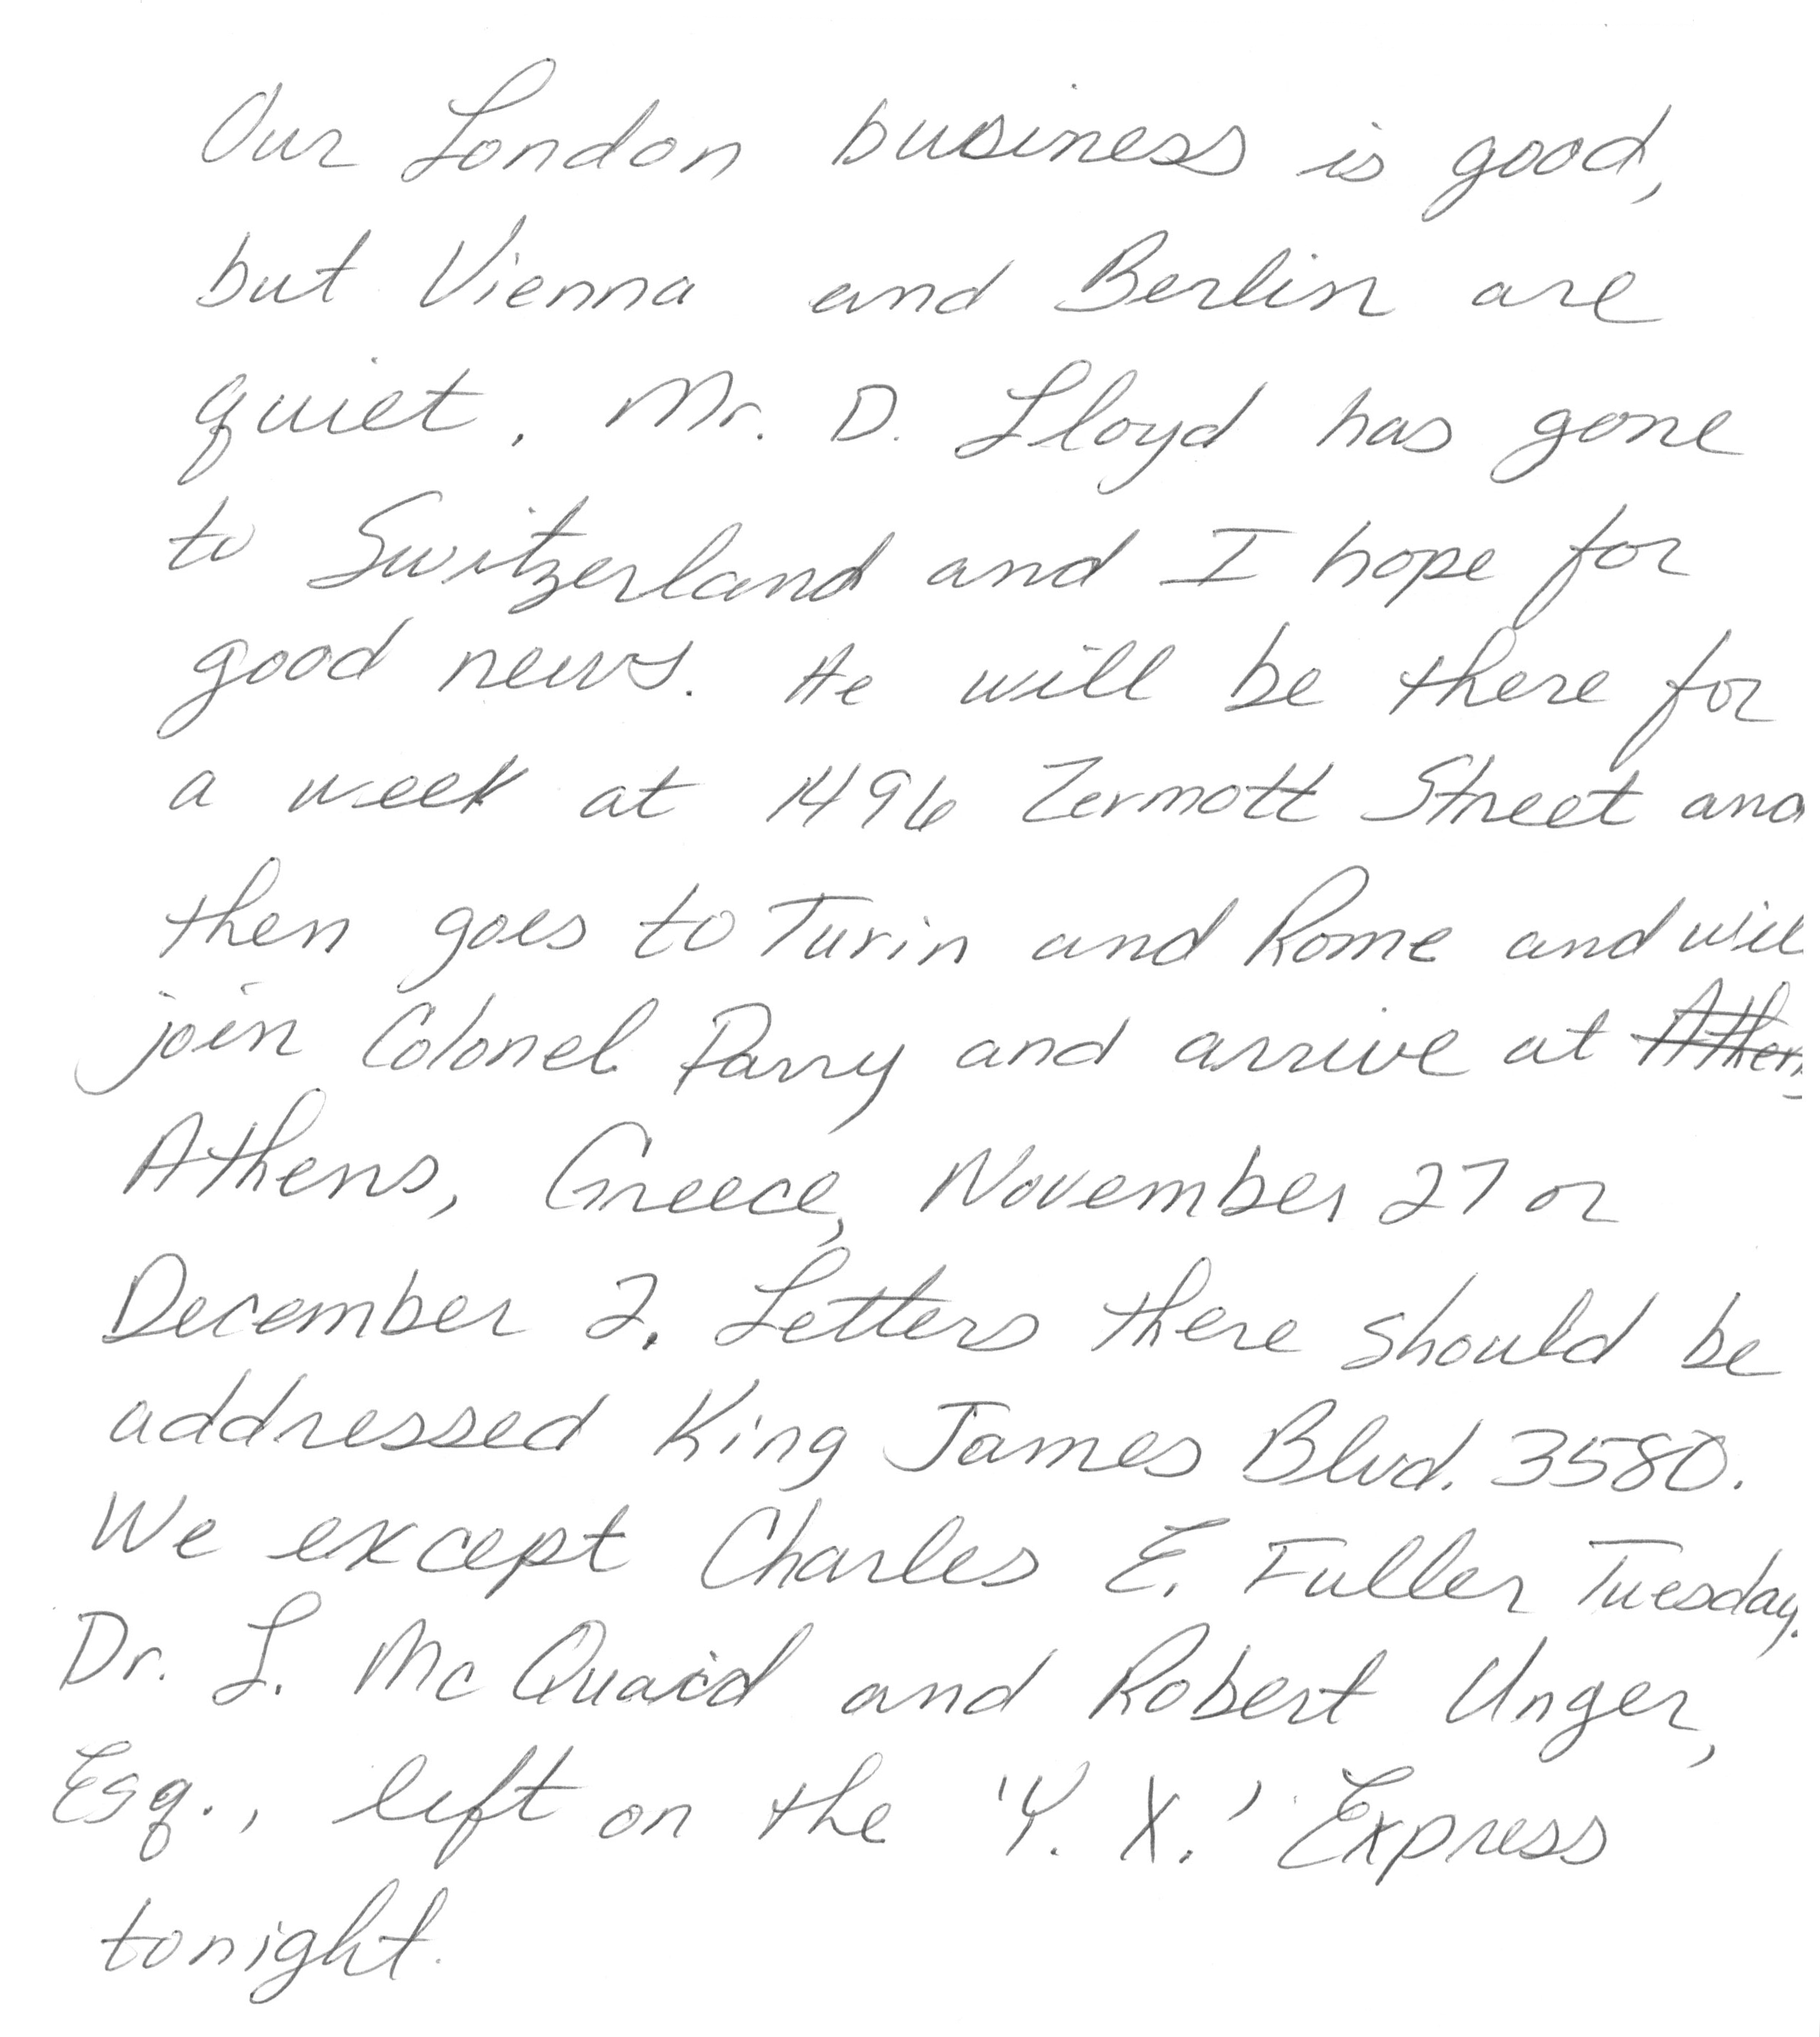 Our London business is good,
but Vienna and Berlin are
quiet. Mr. D. Lloyd has gone
to Switzerland and I hope for
good news. He will be there for
a week at 1496 Zermott Street and
then goes to Turin and Rome and will
join Colonel Parry and arrive at Athens
Athens, Greece, November 27 or
December 2. Letters there should be
addressed King James Blvd. 3580.
We except Charles E. Fuller Tuesday.
Dr. L. McQuaid and Robert Unger,
Esq., left on the 'Y. X.' Express
tonight.